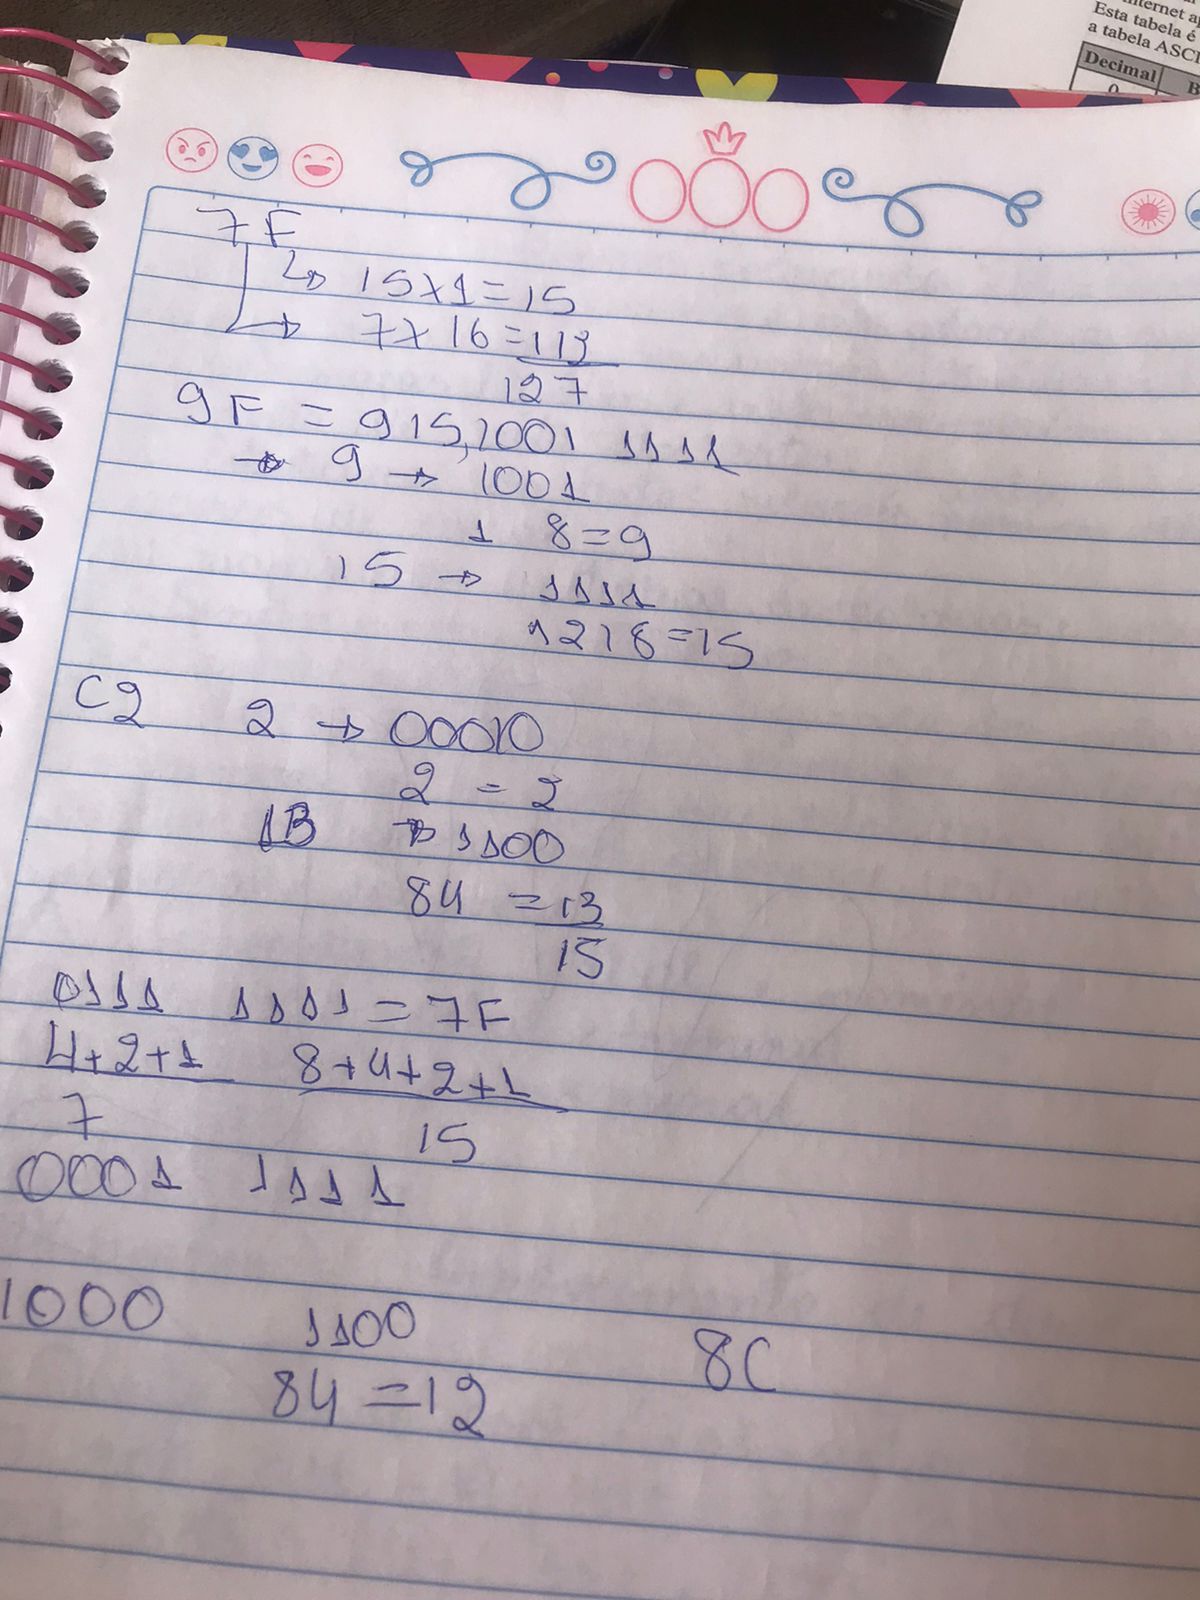 internet ap
Esta tabela é
a tabela ASCI
Decimal B
0
7F
↳ 15x1=15
→ 7x16=113
127
9F = 915,1001 1111
→ 9 → 1001
1 8=9
15 → 1111
1218=15
C2 2 → 00010
2 = 2
1B → 1100
84 = 13
15
0111 1111 = 7F
4+2+1 8+4+2+1
7 15
0001 1111
1000 1100 8C
84 = 12